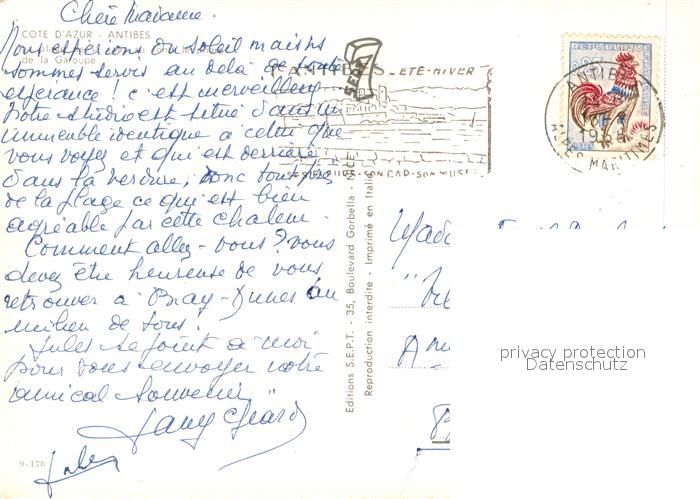 Chère Madame.
COTE D'AZUR - ANTIBES
de la Garoupe
Nous espérions du soleil mais ns
sommes servis au delà de toute
espérance ! c'est merveilleux
Notre studio est situé dans un
immeuble identique à celui que
vous voyez et qui est derrière
dans la verdure, donc tout près
de la plage ce qui est bien
agréable par cette chaleur.
Comment allez-vous ? vous
devez être heureuse de vous
retrouver à Bray-Dunes au
milieu de tous.
Jules se joint à moi
pour vous envoyer notre
amical souvenir
Jules
9-178
ANTIBES - ETE-HIVER
SON CAP - SON MUSEE
SEPT
Editions S.E.P.T. - 35, Boulevard Gorbella -
Reproduction interdite - Imprimé en Italie
REPUBLIQUE
ANTIBES
ALPES MARITIMES
privacy protection
Datenschutz